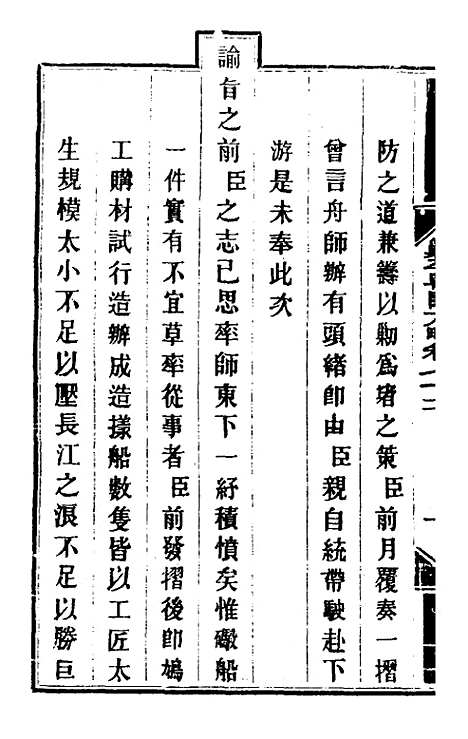 防之道兼籌以勦爲堵之策臣前月覆奏一摺
曾言舟師辦有頭緒卽由臣親自統帶駛赴下
游是未奉此次
諭旨之前臣之志已思率師東下一紓積憤矣惟礮船
一件實有不宜草率從事者臣前發摺後卽鳩
工購材試行造辦成造樣船數隻皆以工匠太
生規模太小不足以壓長江之浪不足以勝巨